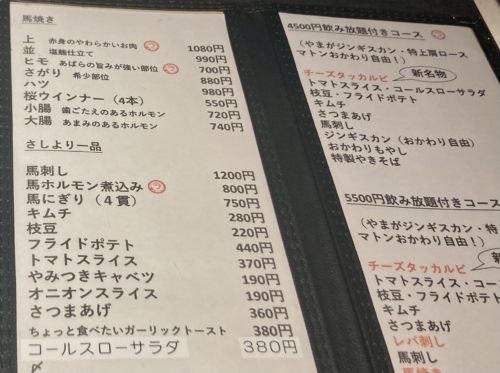 馬焼き
上 赤身のやわらかいお肉 1080円
並 塩麹仕立て 990円
ヒモ あばらの旨みが強い部位 700円
さがり 希少部位 880円
ハツ 980円
桜ウインナー(4本) 550円
小腸 歯ごたえのあるホルモン 720円
大腸 あまみのあるホルモン 740円
さしより一品
馬刺し 1200円
馬ホルモン煮込み 800円
馬にぎり(4貫) 750円
キムチ 280円
枝豆 220円
フライドポテト 440円
トマトスライス 370円
やみつきキャベツ 190円
オニオンスライス 190円
さつまあげ 360円
ちょっと食べたいガーリックトースト 380円
コールスローサラダ 380円
〆
4500円飲み放題付きコース
(やまがジンギスカン・特上肩ロース
マトンおかわり自由!)
チーズタッカルビ 新名物
トマトスライス・コールスローサラダ
枝豆・フライドポテト
キムチ
さつまあげ
馬刺し
ジンギスカン(おかわり自由)
おかわりもやし
特製やきそば
5500円飲み放題付きコース
(やまがジンギスカン・特
マトンおかわり自由!)
チーズタッカルビ 新
トマトスライス・コ
枝豆・フライドポ
キムチ
さつまあげ
レバ刺し
馬刺し
馬焼き